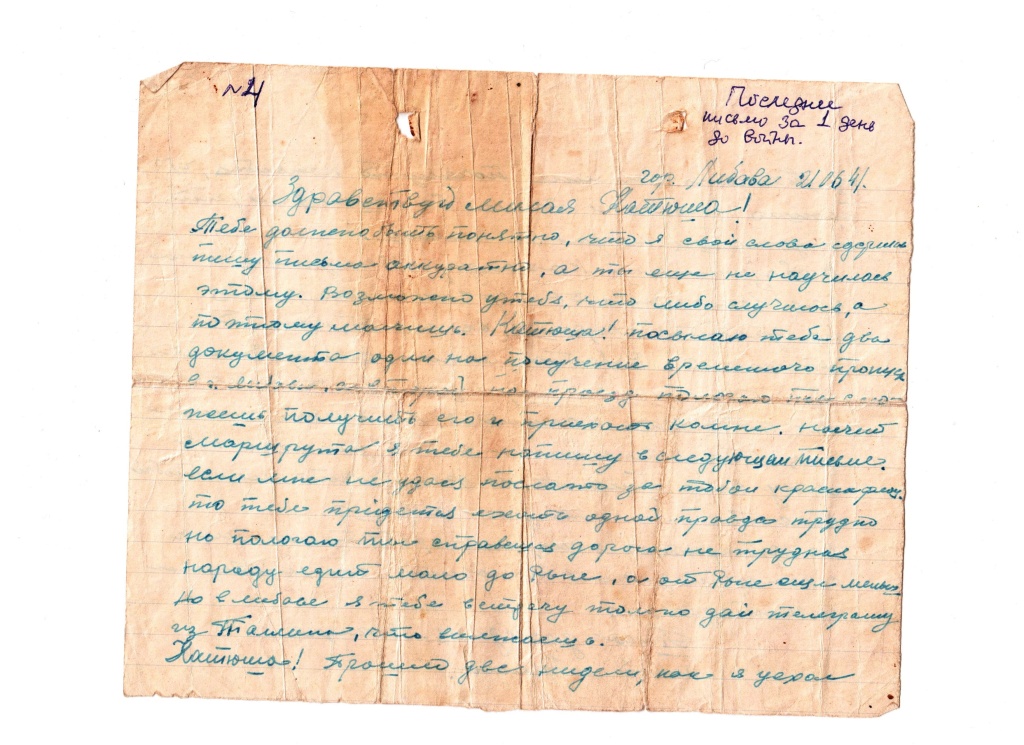 №4
Последнее
письмо за 1 день
до войны.
гор. Либава 21.06.41.
Здравствуй милая Катюша!
Тебе должно быть понятно, что я свои слова сдержал
пишу письма аккуратно, а ты еще не научилась
этому. Возможно у тебя, что либо случилось, а
поэтому молчишь. Катюша! посылаю тебе два
документа один на получение временного пропуска
в г. Либаву, на проезд пологаю ты
жешь получить его и приехать комне. Насчет
маршрута я тебе напишу в следующем письме.
если мне не удася послать за тобой краснофлот.
то тебе придется ехать одной правда трудно
но пологаю ты справишся дорога не трудная
народу едит мало до Риги, а от Риги еще меньш
Но в либаве я тебе встречу только дай телеграму
из Талина, что выезжаеш.
Катюша! Прошло две нидели, как я уехал